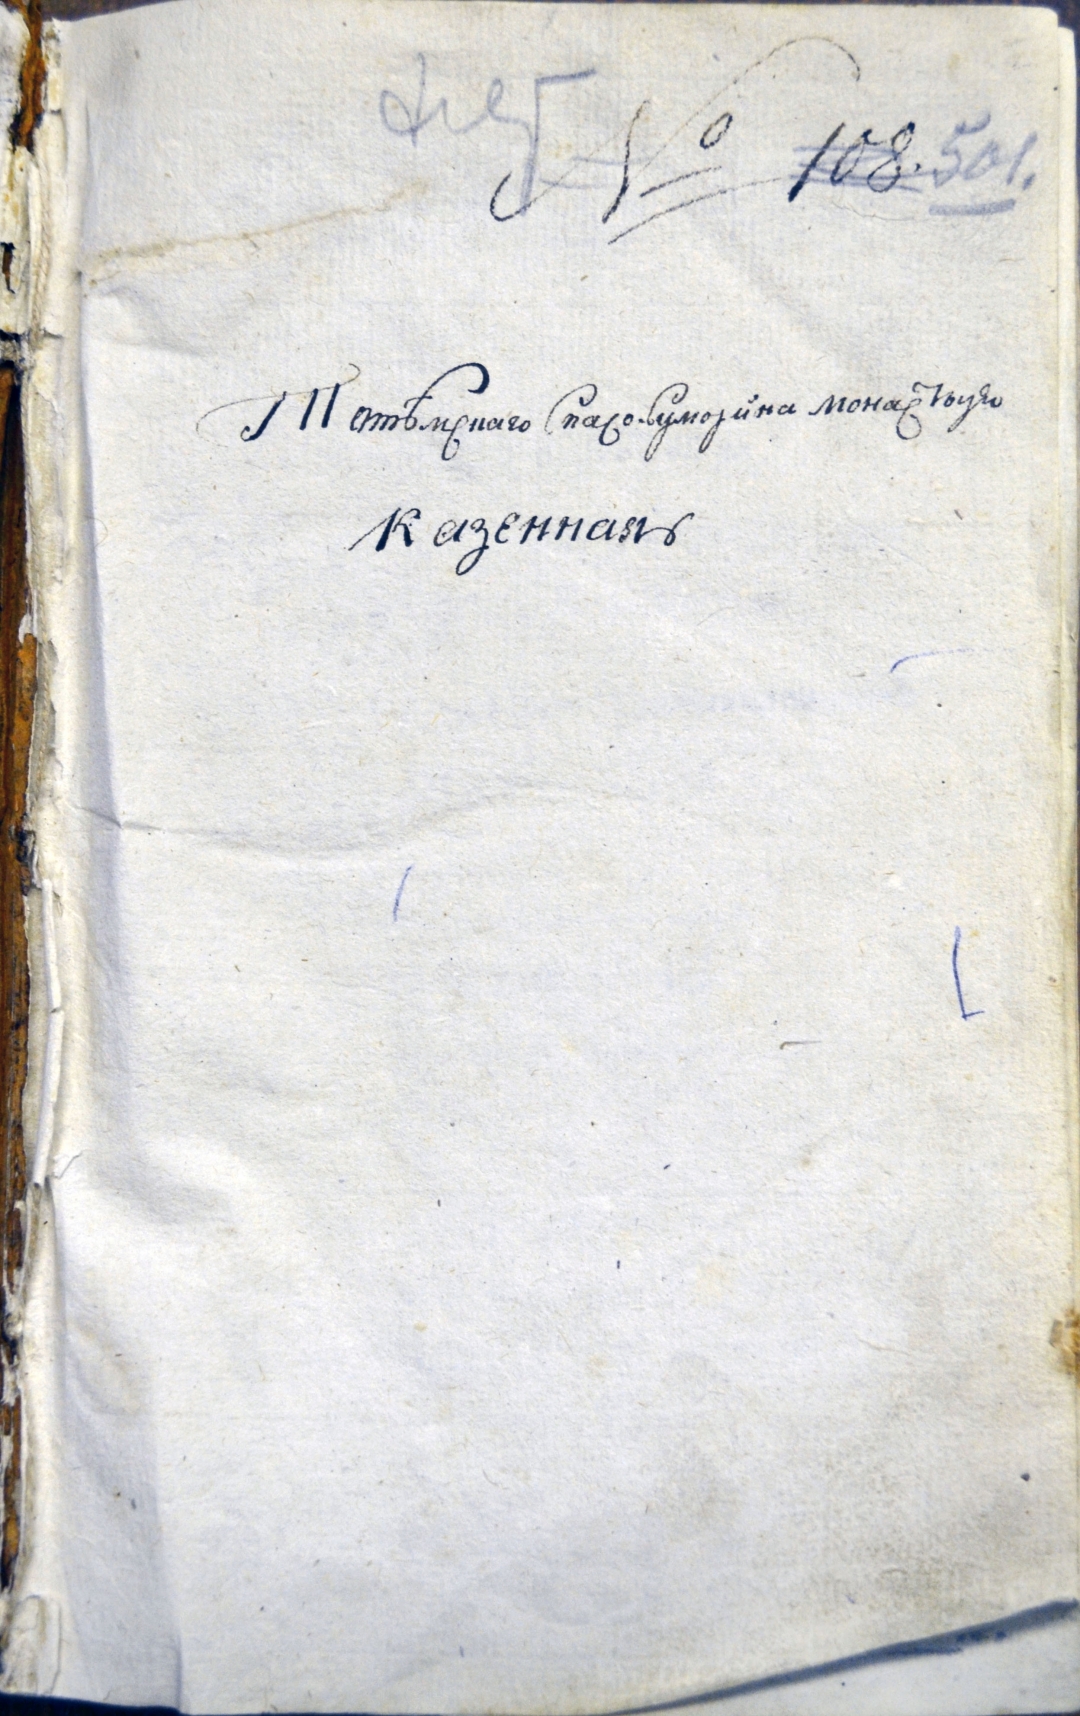 № 108. 501.
Тотъмскаго Спасо Суморина монастыря
казенная